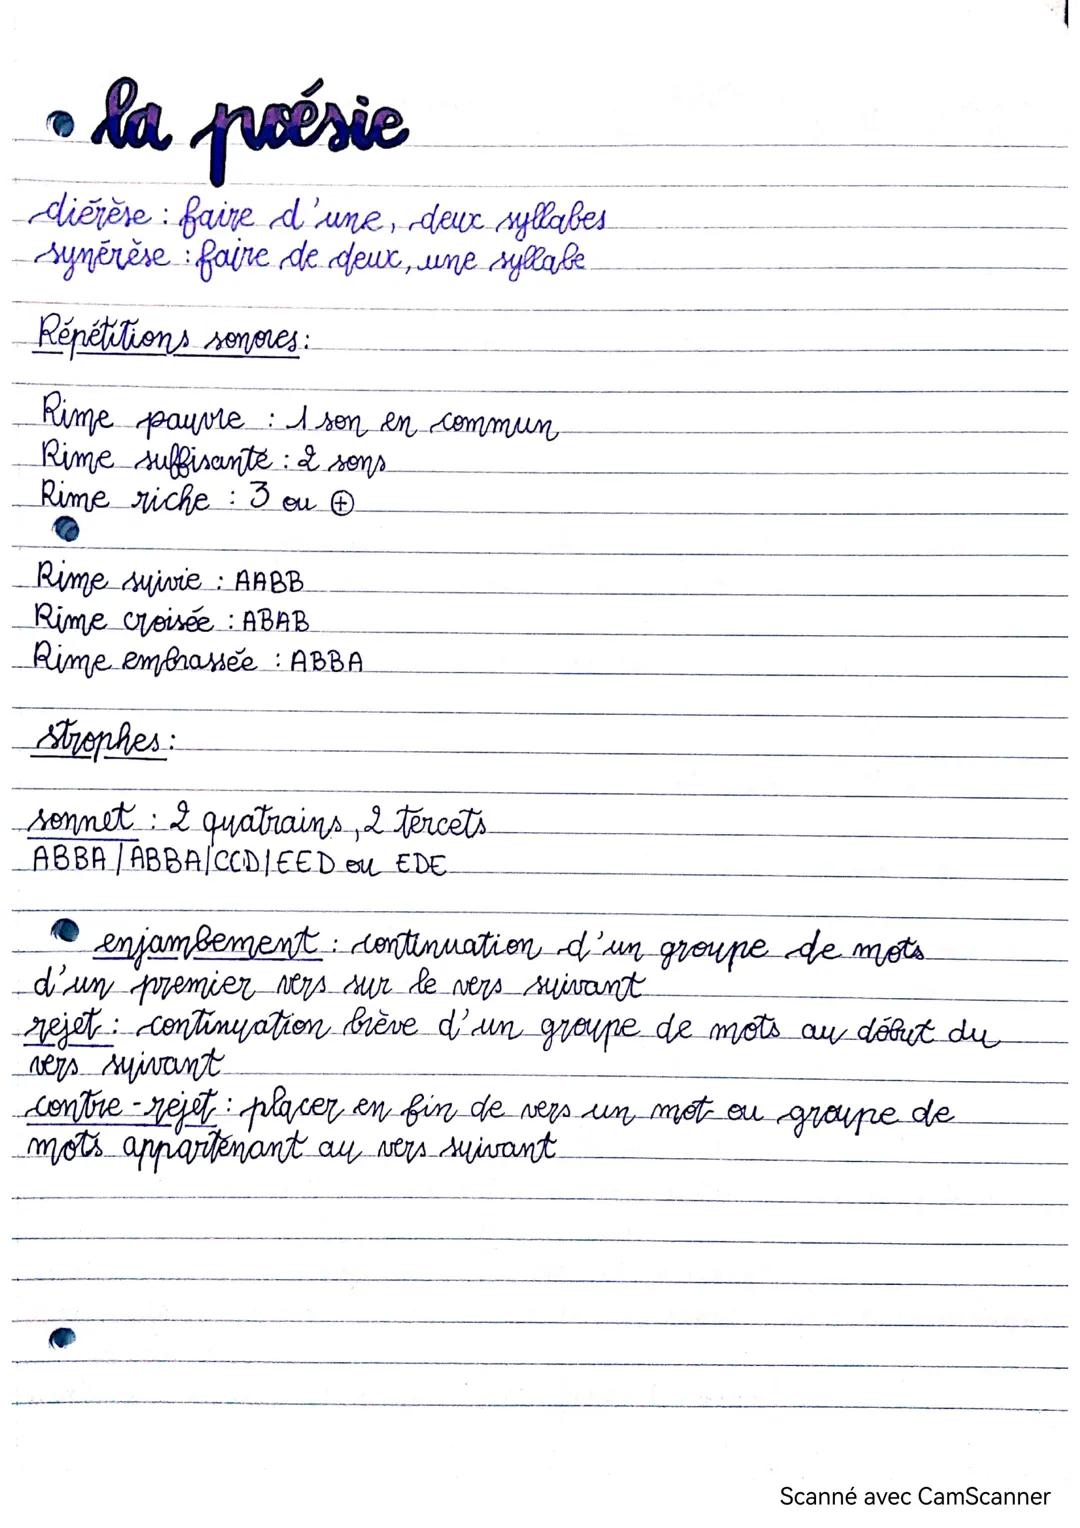 la poésie
diérèse : faire d'une, deux syllabes
synérèse : faire de deux, une syllabe
Répétitions sonores :
Rime pauvre : 1 son en commun
Rime suffisante : 2 sons
Rime riche : 3 ou ⊕
Rime suivie : AABB
Rime croisée : ABAB
Rime embrassée : ABBA
strophes :
sonnet : 2 quatrains, 2 tercets
ABBA | ABBA | CCD | EED ou EDE
enjambement : continuation d'un groupe de mots
d'un premier vers sur le vers suivant
rejet : continuation brève d'un groupe de mots au début du
vers suivant
contre-rejet : placer en fin de vers un mot ou groupe de
mots appartenant au vers suivant
Scanné avec CamScanner